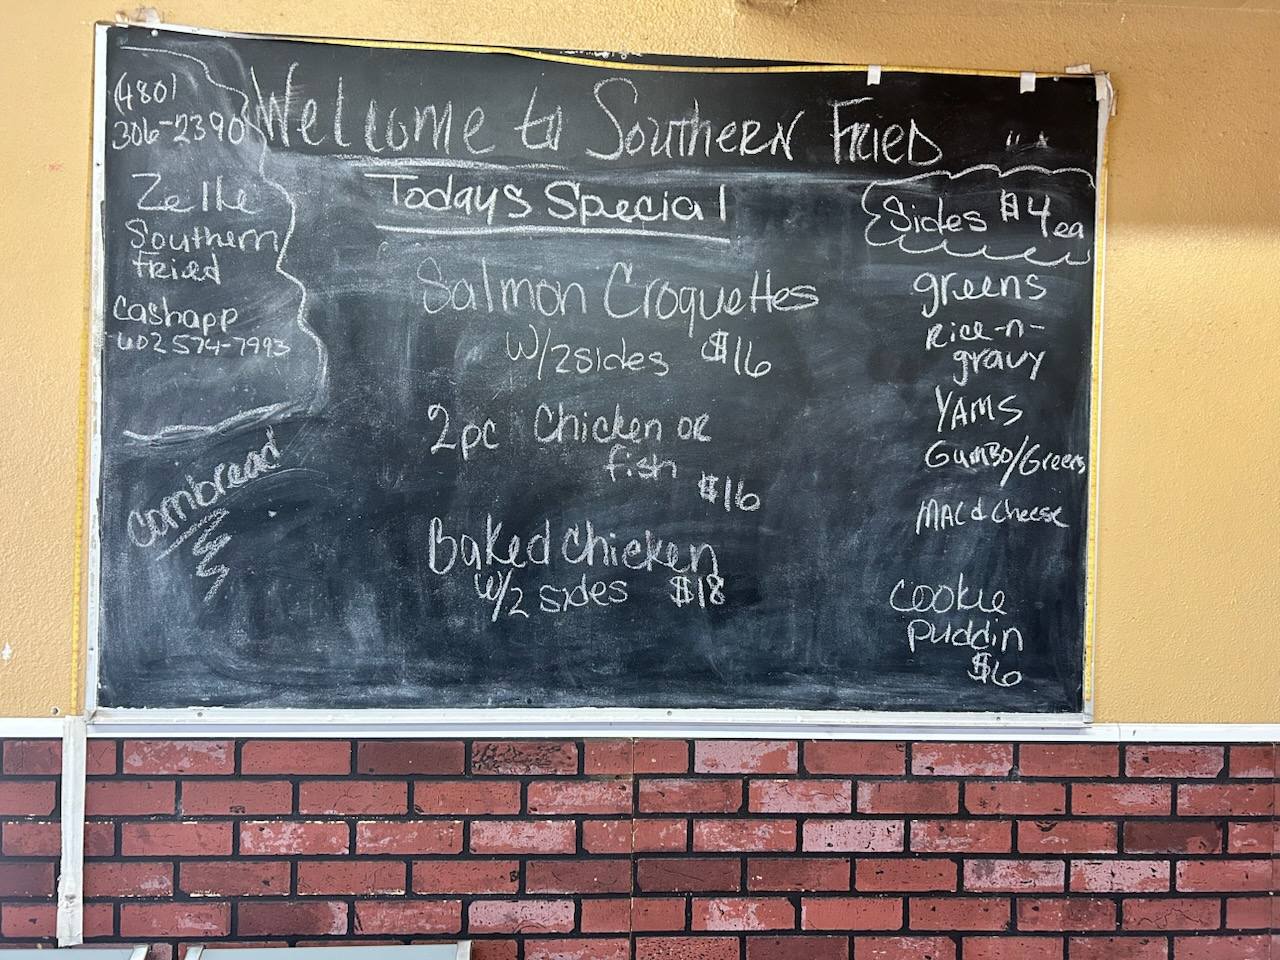 Welcome to Southern Fried
(480)
306-2390
Zelle
Southern
Fried
Cashapp
602 574-7993
cornbread
Todays Special
Salmon Croquettes
w/2 sides $16
2pc Chicken or
fish
$16
Baked Chicken
w/2 sides $18
Sides $4 ea
greens
Rice-n-
gravy
YAMS
GumBo/Greens
MAC & Cheese
cookie
puddin
$6